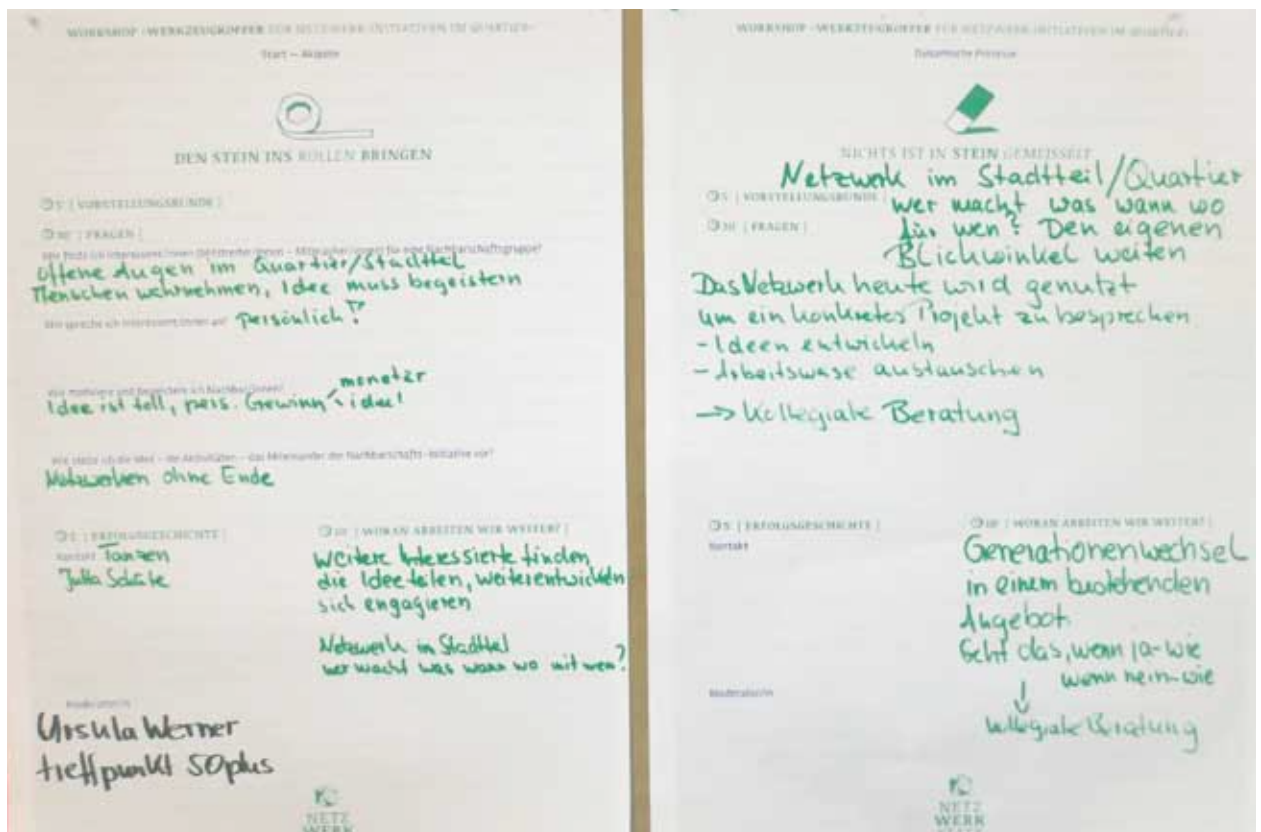 WORKSHOP »WERKZEUGKOFFER FÜR NETZWERK-INITIATIVEN IM QUARTIER«
Start – Akquise
DEN STEIN INS ROLLEN BRINGEN
5' | VORSTELLUNGSRUNDE |
30' | FRAGEN |
Wie finde ich Interessent/innen (Mitstreiter/innen – Mitmacher/innen) für eine Nachbarschaftsgruppe?
Offene Augen im Quartier/Stadttel
Menschen wahrnehmen, Idee muss begeistern
Wie spreche ich Interessent/innen an? persönlich!?
monetär
Wie motiviere und begeistere ich Nachbar/innen?
Idee ist toll, pers. Gewinn ideel
Wie stelle ich die Idee – die Aktivitäten – das Miteinander der Nachbarschafts-Initiative vor?
Netzwerken ohne Ende
5' | ERFOLGSGESCHICHTE |
Kontakt Tanzen
Jutta
10' | WORAN ARBEITEN WIR WEITER? |
Weitere Interessierte finden,
die Idee teilen, weiterentwickeln
sich engagieren
Netzwerk in Stadttel
wer macht was wann wo mit wem?
Moderator/in
Ursula Werner
treffpunkt 50plus
NETZ
WERK
WORKSHOP »WERKZEUGKOFFER FÜR NETZWERK-INITIATIVEN IM QUARTIER«
Dynamische Prozesse
NICHTS IST IN STEIN GEMEISSELT
Netzwerk im Stadtteil/Quartier
5' | VORSTELLUNGSRUNDE |
wer macht was wann wo
30' | FRAGEN |
für wen? Den eigenen
Blickwinkel weiten
Das Netzwerk heute wird genutzt
um ein konkretes Projekt zu besprechen
- Ideen entwickeln
- Arbeitswese austauschen
→ Kollegiale Beratung
5' | ERFOLGSGESCHICHTE |
Kontakt
10' | WORAN ARBEITEN WIR WEITER? |
Generationenwechsel
in einem bestehenden
Angebot
Geht das, wenn ja-wie
wenn nein-wie
↓
Kollegiale Beratung
Moderator/in
NETZ
WERK